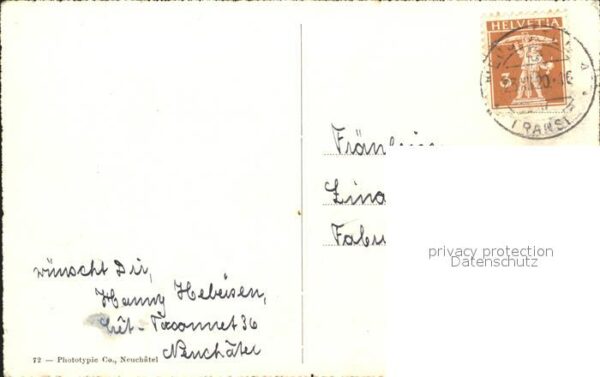 HELVETIA
3
TRANSI
Fräulein
Lina
Fabri
privacy protection
Datenschutz
wünscht Dir,
Hanny Hebeisen,
Crêt-Taconnet 36
Neuchâtel
72 — Phototypie Co., Neuchâtel